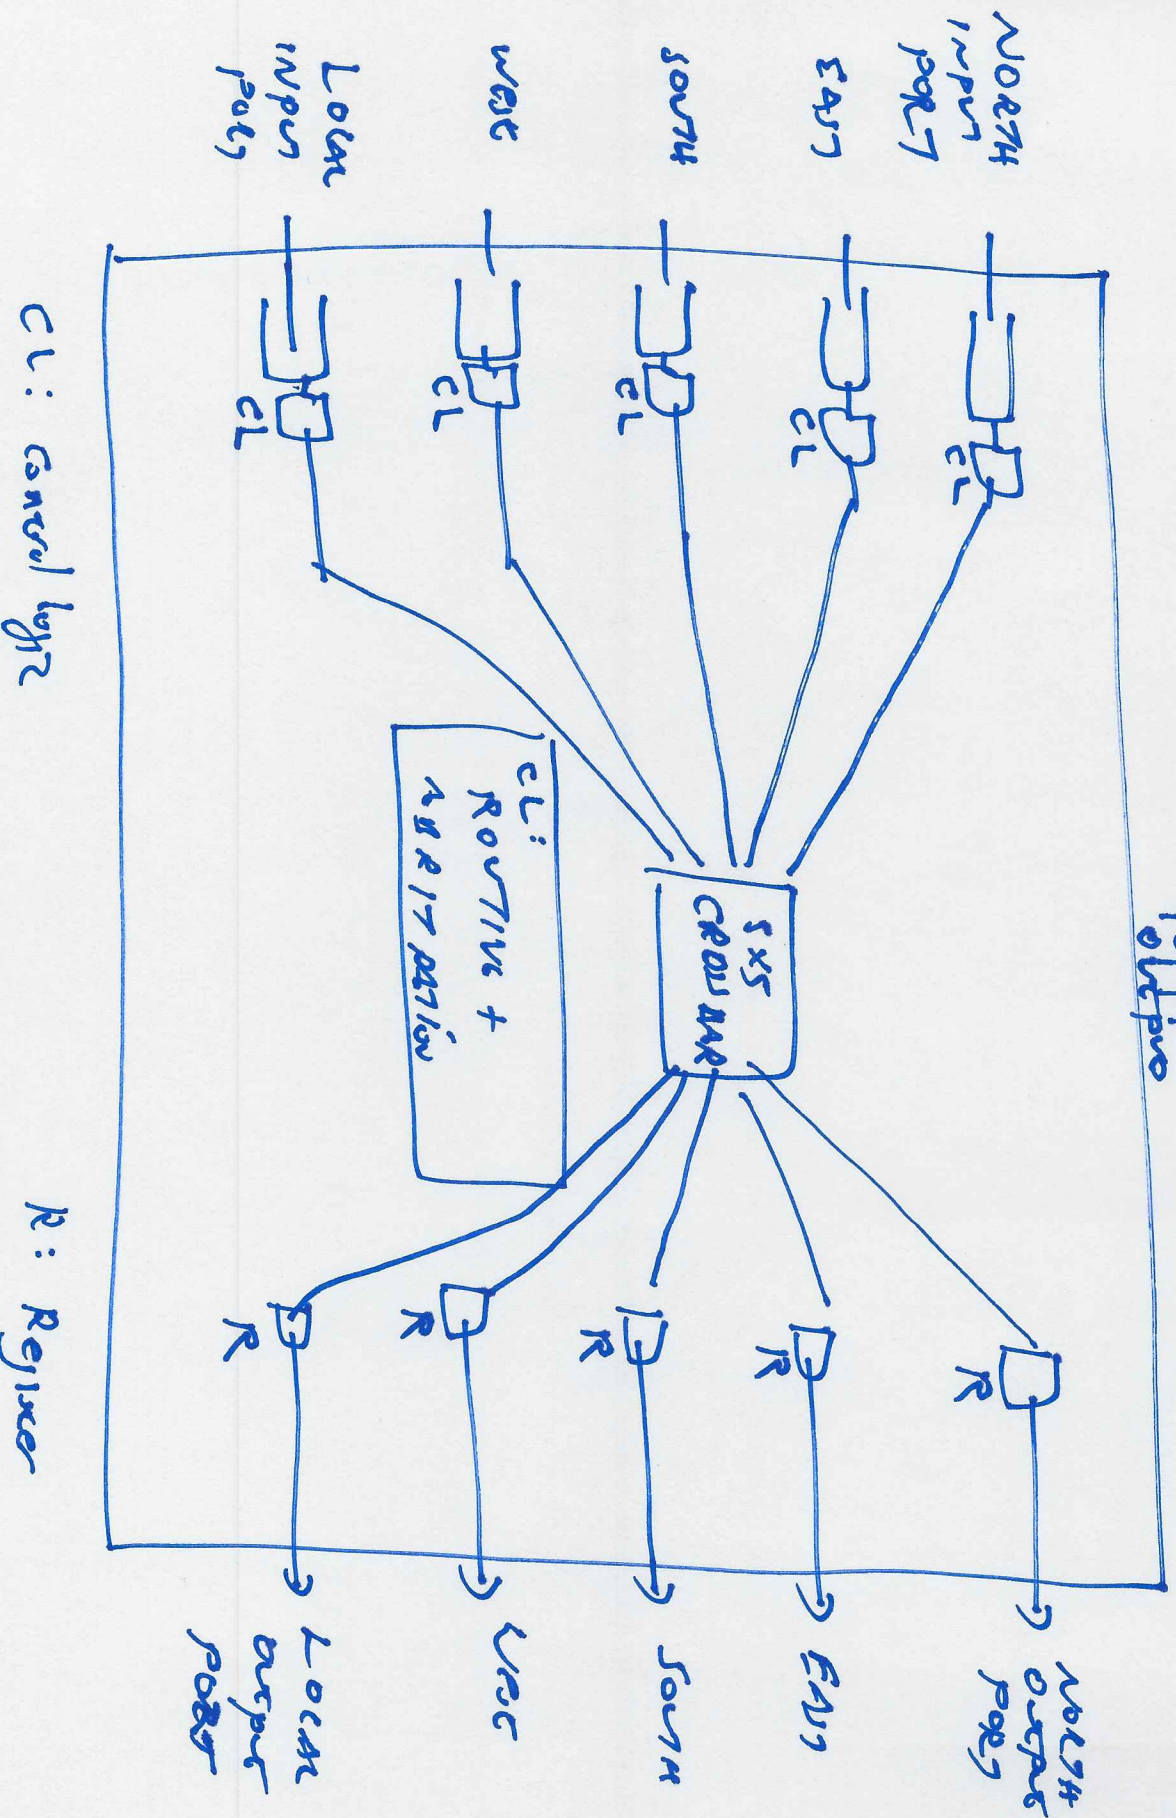 NORTH
INPUT
PORT
EAST
SOUTH
WEST
LOCAL
INPUT
PORT
CL
CL
CL
CL
CL
5X5
CROSSBAR
CL:
ROUTING +
ARBITRATION
R
R
R
R
R
NORTH
OUTPUT
PORT
EAST
SOUTH
WEST
LOCAL
OUTPUT
PORT
CL: Control logic
R: Register